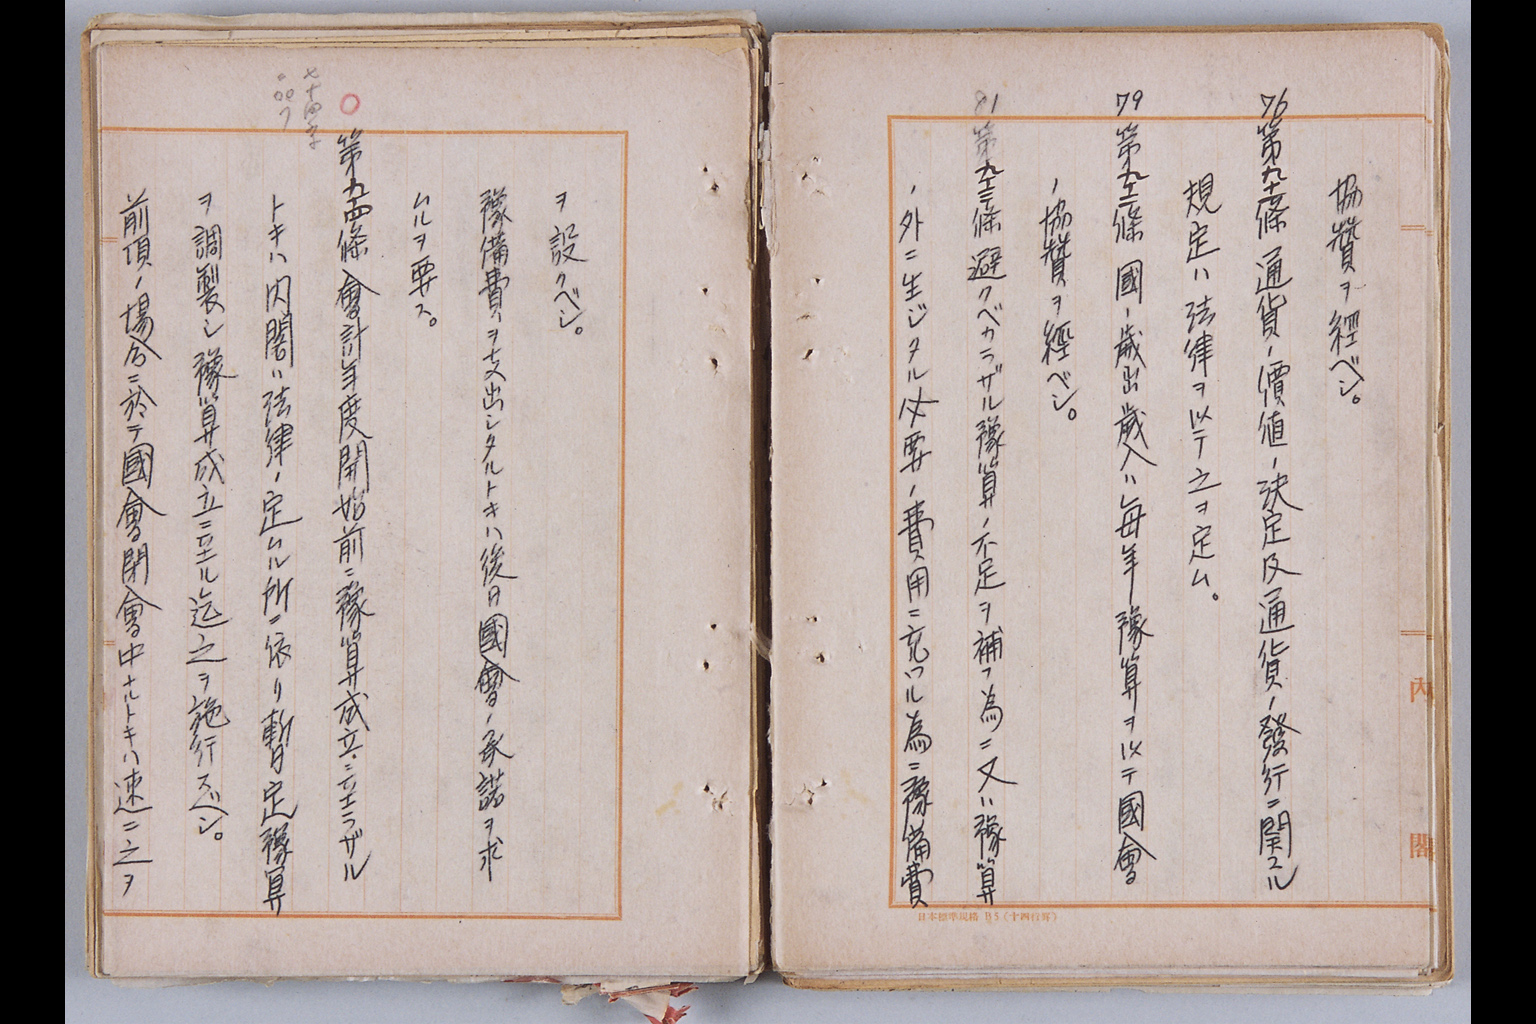 協贊ヲ經ベシ。
76
第九十一條 通貨ノ價値ノ決定及通貨ノ發行ニ関スル
規定ハ法律ヲ以テ之ヲ定ム。
79
第九十二條 國ノ歳出歳入ハ毎年豫算ヲ以テ國會
ノ協贊ヲ經ベシ。
81
第九十三條 避クベカラザル豫算ノ不足ヲ補フ為ニ又ハ豫算
ノ外ニ生ジタル必要ノ費用ニ充ツル為ニ豫備費
内閣
日本標準規格 B5(十四行罫)
ヲ設クベシ。
豫備費ヲ支出シタルトキハ後日國會ノ承諾ヲ求
ムルヲ要ス。
○
第九十四條 會計年度開始前ニ豫算成立ニ至ラザル
トキハ内閣ハ法律ノ定ムル所ニ依リ暫定豫算
ヲ調製シ豫算成立ニ至ル迄之ヲ施行スベシ。
前項ノ場合ニ於テ國會閉會中ナルトキハ速ニ之ヲ